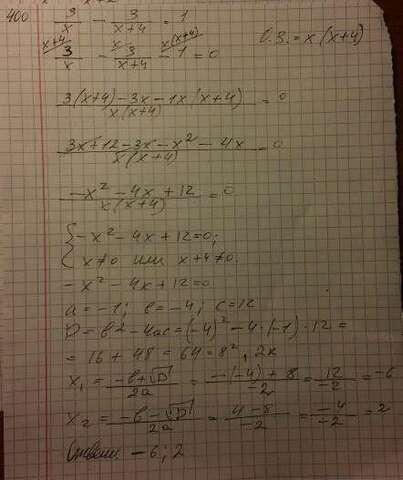 400 3/x - 3/(x+4) = 1
О.З. = x(x+4)
x+4/ 3/x - x/ 3/(x+4) - x(x+4)/ 1 = 0
(3(x+4) - 3x - 1x(x+4))/(x(x+4)) = 0
(3x + 12 - 3x - x² - 4x)/(x(x+4)) = 0
(-x² - 4x + 12)/(x(x+4)) = 0
{ -x² - 4x + 12 = 0;
x ≠ 0 или x+4 ≠ 0.
-x² - 4x + 12 = 0
a = -1; b = -4; c = 12
D = b² - 4ac = (-4)² - 4·(-1)·12 =
= 16 + 48 = 64 = 8², 2к
x₁ = (-b + √D)/2a = (-(-4) + 8)/-2 = 12/-2 = -6
x₂ = (-b - √D)/2a = (4 - 8)/-2 = -4/-2 = 2
Ответ: -6; 2